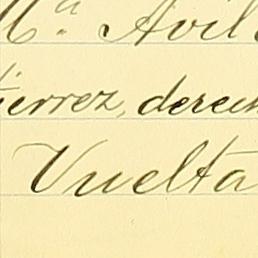 Mª. Avil
ierrez, derech
Vuelta